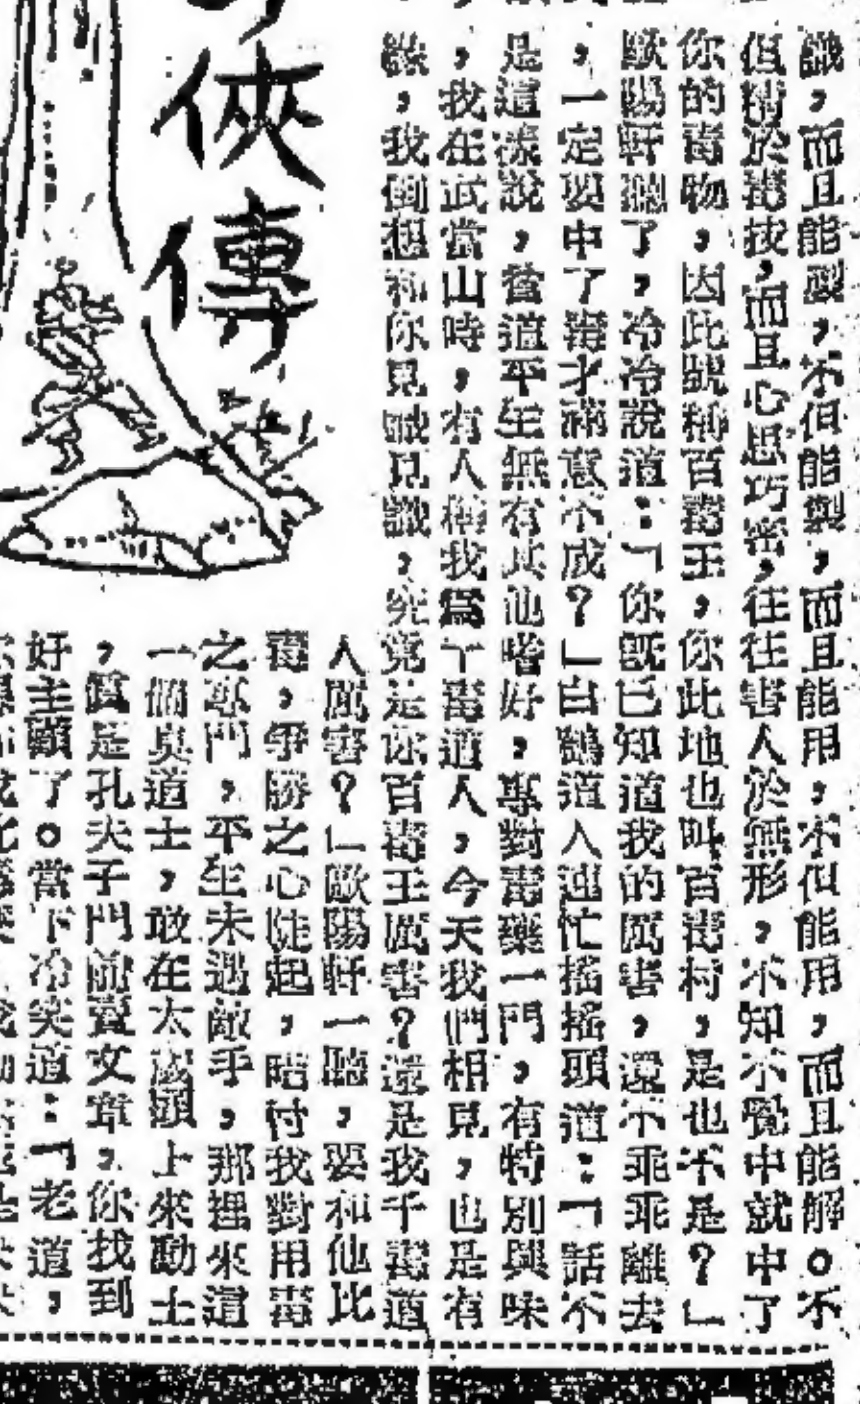 識，而且能製，不但能製，而且能用，不但能用，而且能解。不
但精於毒技，而且心思巧密，往往害人於無形，不知不覺中就中了
你的毒物，因此號稱百毒王，你此地也叫百毒村，是也不是？」
歐陽軒聽了，冷冷說道：「你既已知道我的厲害，還不乖乖離去
，一定要中了毒才滿意不成？」白鶴道人連忙搖搖頭道：「話不
是這樣說，貧道平生無有其他嗜好，專對毒藥一門，有特別興味
，我在武當山時，有人稱我為千毒道人，今天我們相見，也是有
緣，我倒想和你見識見識，究竟是你百毒王厲害？還是我千毒道
人厲害？」歐陽軒一聽，要和他比
毒，爭勝之心陡起，暗忖我對用毒
之專門，平生未遇敵手，那裡來這
一個臭道士，敢在太歲頭上來動土
，眞是孔夫子門前賣文章，你找到
好主顧了。當下冷笑道：「老道，
俠傳